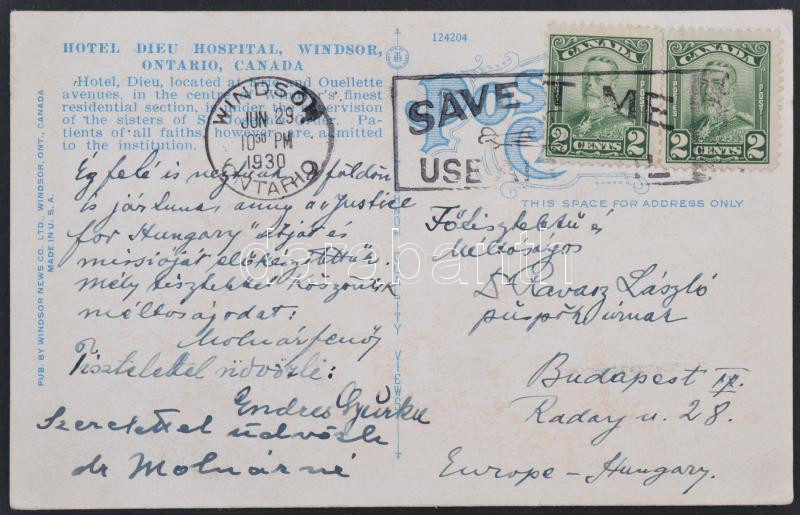 HOTEL DIEU HOSPITAL, WINDSOR,
ONTARIO, CANADA
Hotel, Dieu, located at and Ouellette
avenues, in the center finest
residential section, is under the supervision
of the sisters of St. Pa-
tients of all faiths, however, are admitted
to the institution.
124204
WINDSOR
JUN 29
10 30 PM
1930
ONTARIO
SAVE TIME
USE
CANADA
POSTES POST
2 CENTS 2
CANADA
POSTES POST
2 CENTS 2
THIS SPACE FOR ADDRESS ONLY
Égfelé is földön
is jártunk, a „Justice
for Hungary" útját és
misszióját előkészítettük.
Mély tisztelettel köszöntik
méltóságodat:
Molnár Jenő
Tisztelettel üdvözli:
Endres Gyurka
Szeretettel üdvözli
dr Molnárné
Főtisztelendő és
Méltóságos
D. Ravasz László
püspök úrnak
Budapest IX.
Raday u. 28.
Europe – Hungary.
PUB. BY WINDSOR NEWS CO. LTD., WINDSOR, ONT., CANADA
MADE IN U. S. A.
CITY VIEWS
darabanth